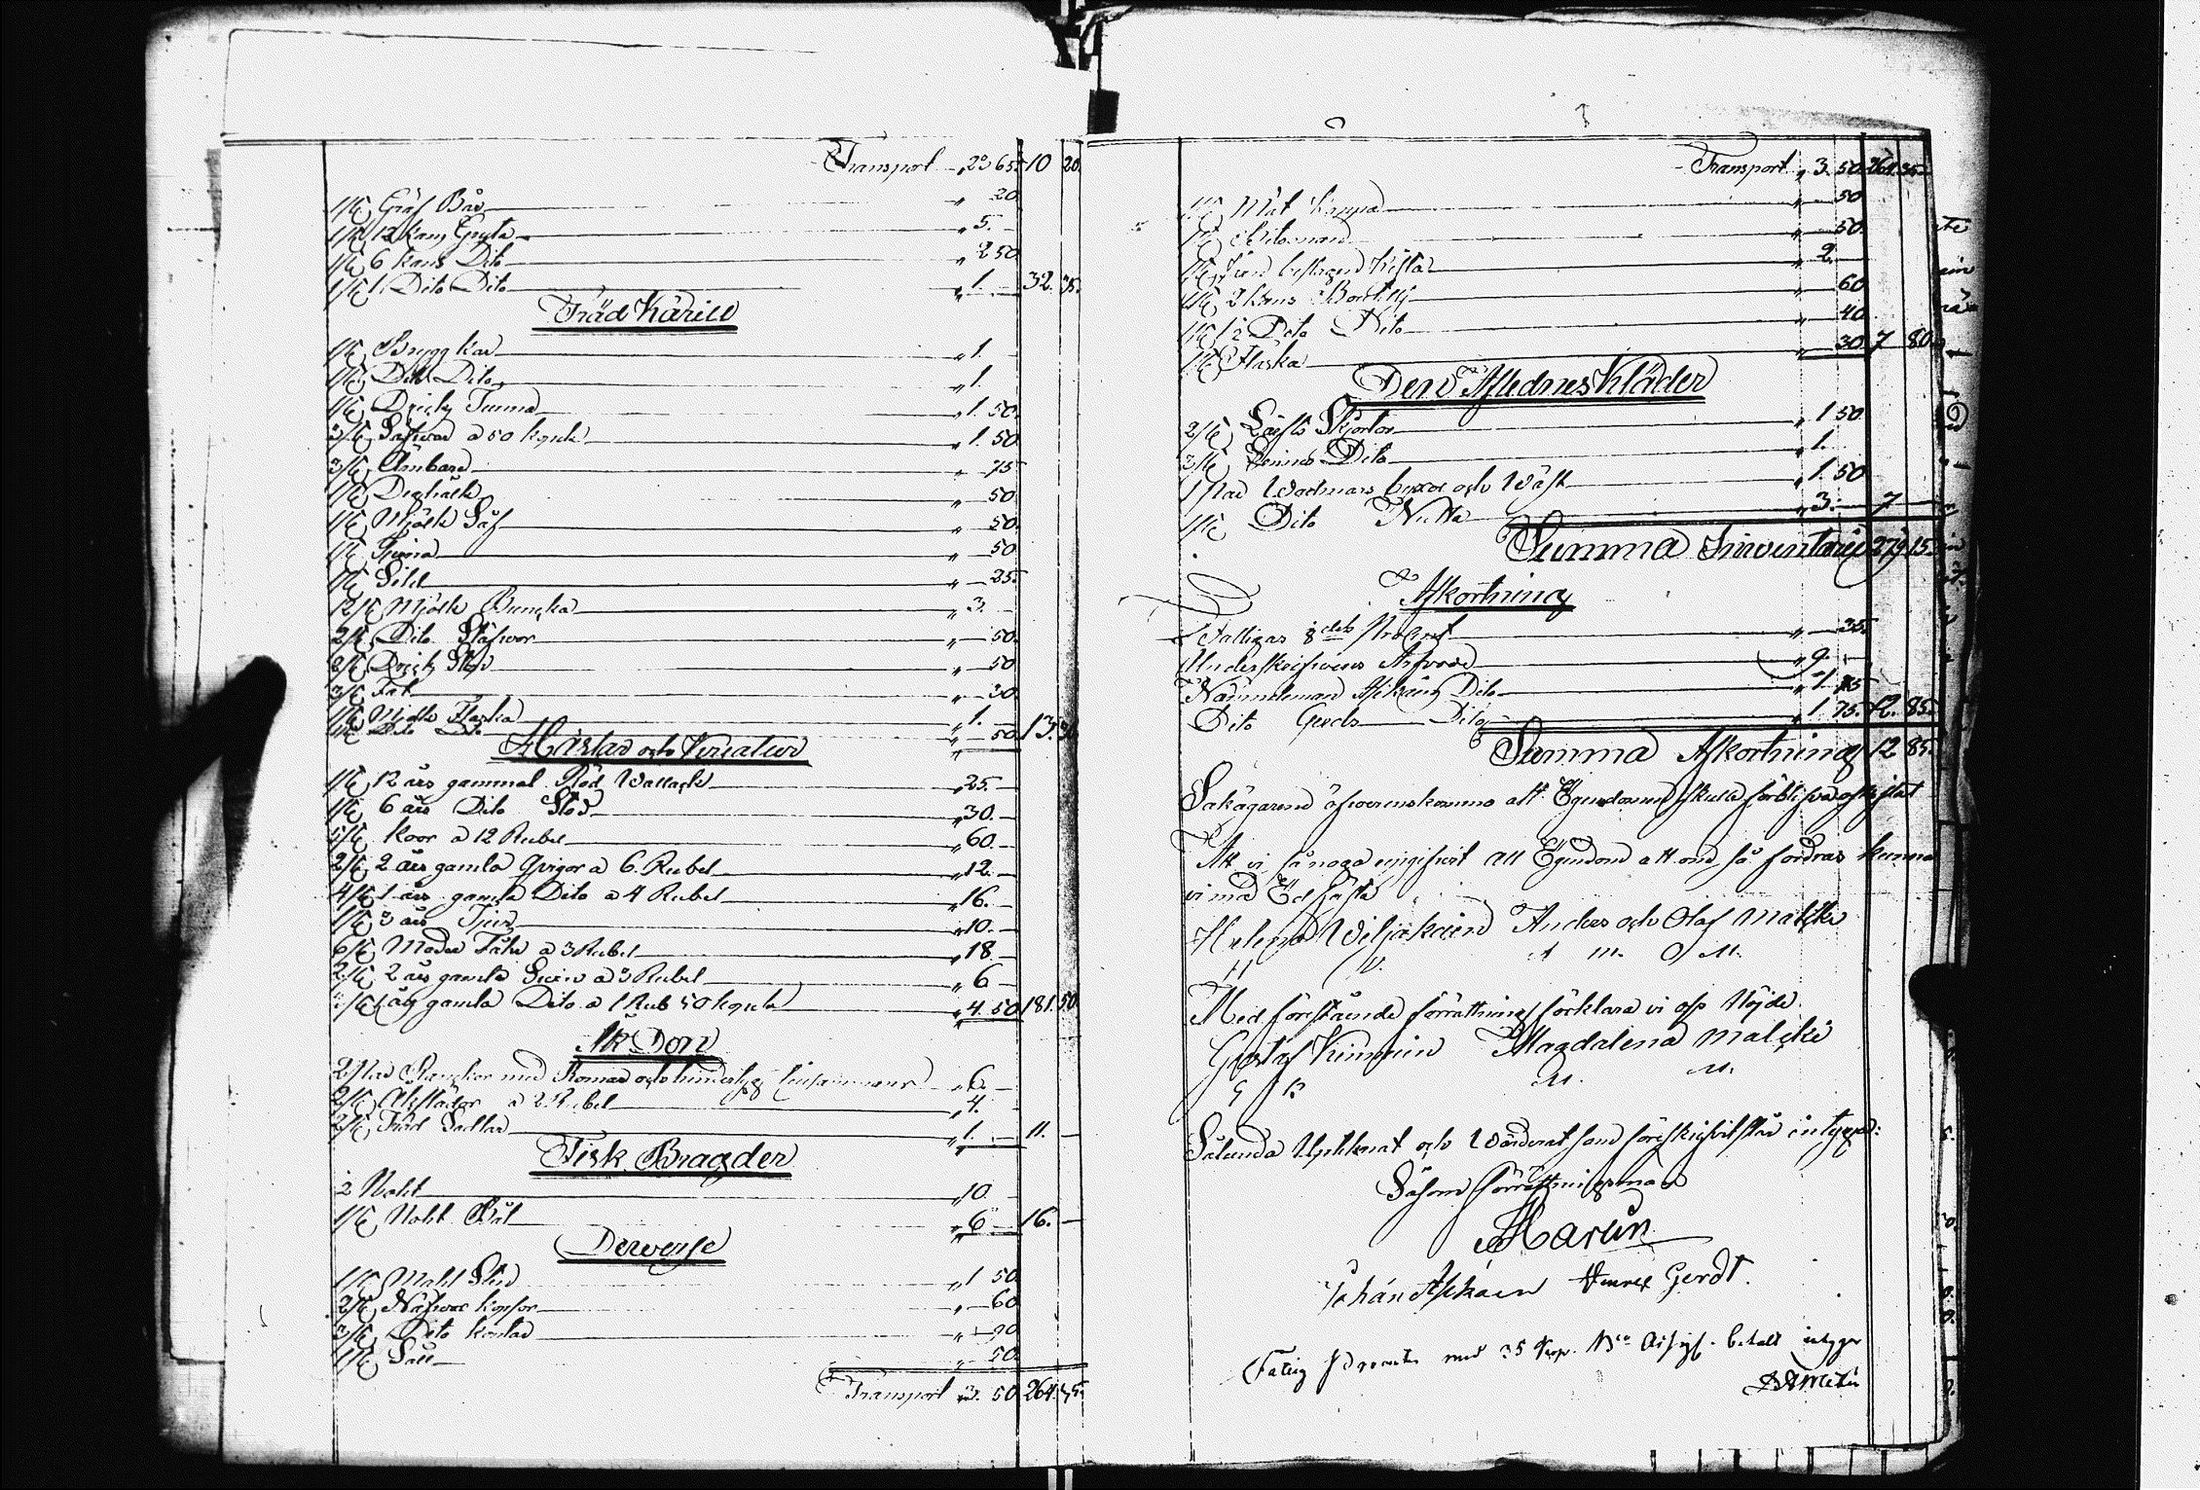 Transport „ 23 65. 10 20.
1/st Gräf Bår „ 20
1/st 12 kans Gryta „ 5.
1/st 6 kans Dito „ 2 50
1/st 1 Dito Dito „ 1. 32. 35.
Träd Kärill
1/st Brygg kar „ 1.
1/st Dito Dito „ 1.
1/st Dricks Tunna „ 1. 50.
3/st Såfwar a 50 kopek „ 1. 50
3/st Ämbare „ 75
1/st Degtråck „ 50
1/st Mjölk Såf „ 50.
1/st Tiina „ 50
1/st Sikt „ 25.
12/st Mjölk Buncka „ 3.
2/st Dito Stäfwor „ 50.
2/st Drick Stop „ 50
3/st Fat „ 30
1/st Mjölk Flaska „ 1.
1/st Dito Dito „ 50 13. 30
Hästar och Kreatur
1/st 12 års gammal Röd Wallack „ 25.
1/st 6 års Dito Stod „ 30.
5/st koor a 12 Rubel „ 60.
2/st 2 års gamla Qvigor a 6. Rubel „ 12.
4/st 1 års gamla Dito a 4 Rubel „ 16.
1/st 3 års Tjur „ 10.
6/st Moder Fåhr a 3 Rubel „ 18.
2/st 2 års gamla Swin a 3 Rubel „ 6
3/st 1 års gamla Dito a 1 Rub 50 kopek „ 4. 50 181. 50
Åk Don
2/star Ranckor med Romar och „ 6.
2/st Åkslädor a 2 Rubel „ 4.
2/st Sadlar „ 1. 11. —
Fisk Bragder
2 Noht „ 10.
1/st Noht Båt „ 6 16. —
Dewerse
1/st Maht Sked „ 1 50
2/st Näfwer kopsor „ 60
3/st Dito kontar „ 90
1/st Såll „ 50.
Transport 3. 50 264. 35.
Transport „ 3. 50. 264. 35.
1/st Måt kappa „ 50
1/st Bitsman „ 50.
1/st Jern beslagen kista „ 2.
1/st 2 kans Bouteilj „ 60
1/st 1/2 Dito Dito „ 40
1/st Flaska „ 30. 7 80.
Den Aflednes Kläder
2/st Lärfts Skjortor „ 1 50.
2/st Linne Dito „ 1.
1/par Wadmars byxor och Wäst „ 1. 50
1/st Dito „ 3. 7 —
Summa Inventarie 279 15.
Afkortning
Fattigas 8dels Procent „ 35.
Underskrifwarens Arfvode „ 9.
Nämndeman Askain Dito „ 1. 75
Dito Gerdt Dito „ 1. 75. 12. 85.
Summa Afkortning 12 85.
Sakägarena öfwerenskommo att Egendomen skulle förblifva oskiftat
Att vi så noga uppgifwit all Egendom att om så fordras kunna
vi med Ed fästa
Helena Wiljakain Anders och Olof Malcki
H W. A M. O M.
Med förestående förrättning förklara vi oss Nöjde.
Gustaf Kinnain Magdalena Malcki
G K M. M.
Sålunda Uptecknat och Wärderat som föreskrifvit står intygar:
Såsom förrättningsman
Harun
Johan Askain Henrik Gerdt.
Fattig Procenten med 35 kop. Bco Assign. betalt intygar